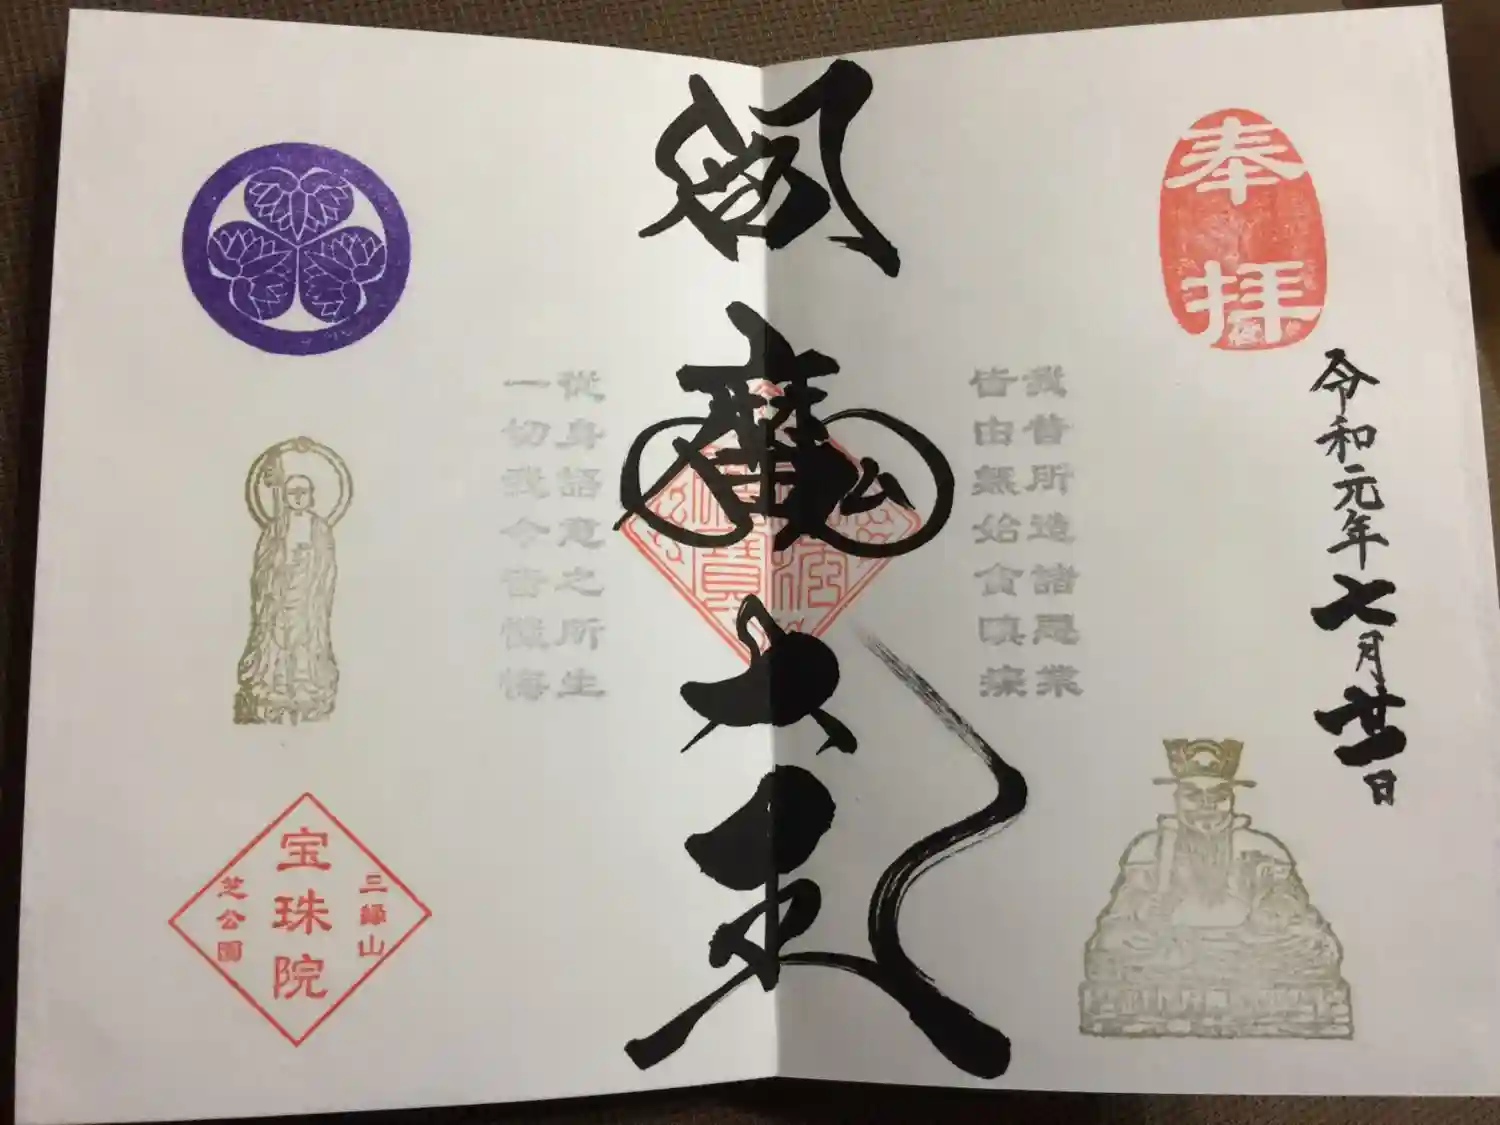 奉拝
令和元年七月廿一日
我昔所造諸悪業
皆由無始貪瞋癡
閻魔大王
從身語意之所生
一切我今皆懺悔
三縁山
宝珠院
芝公園